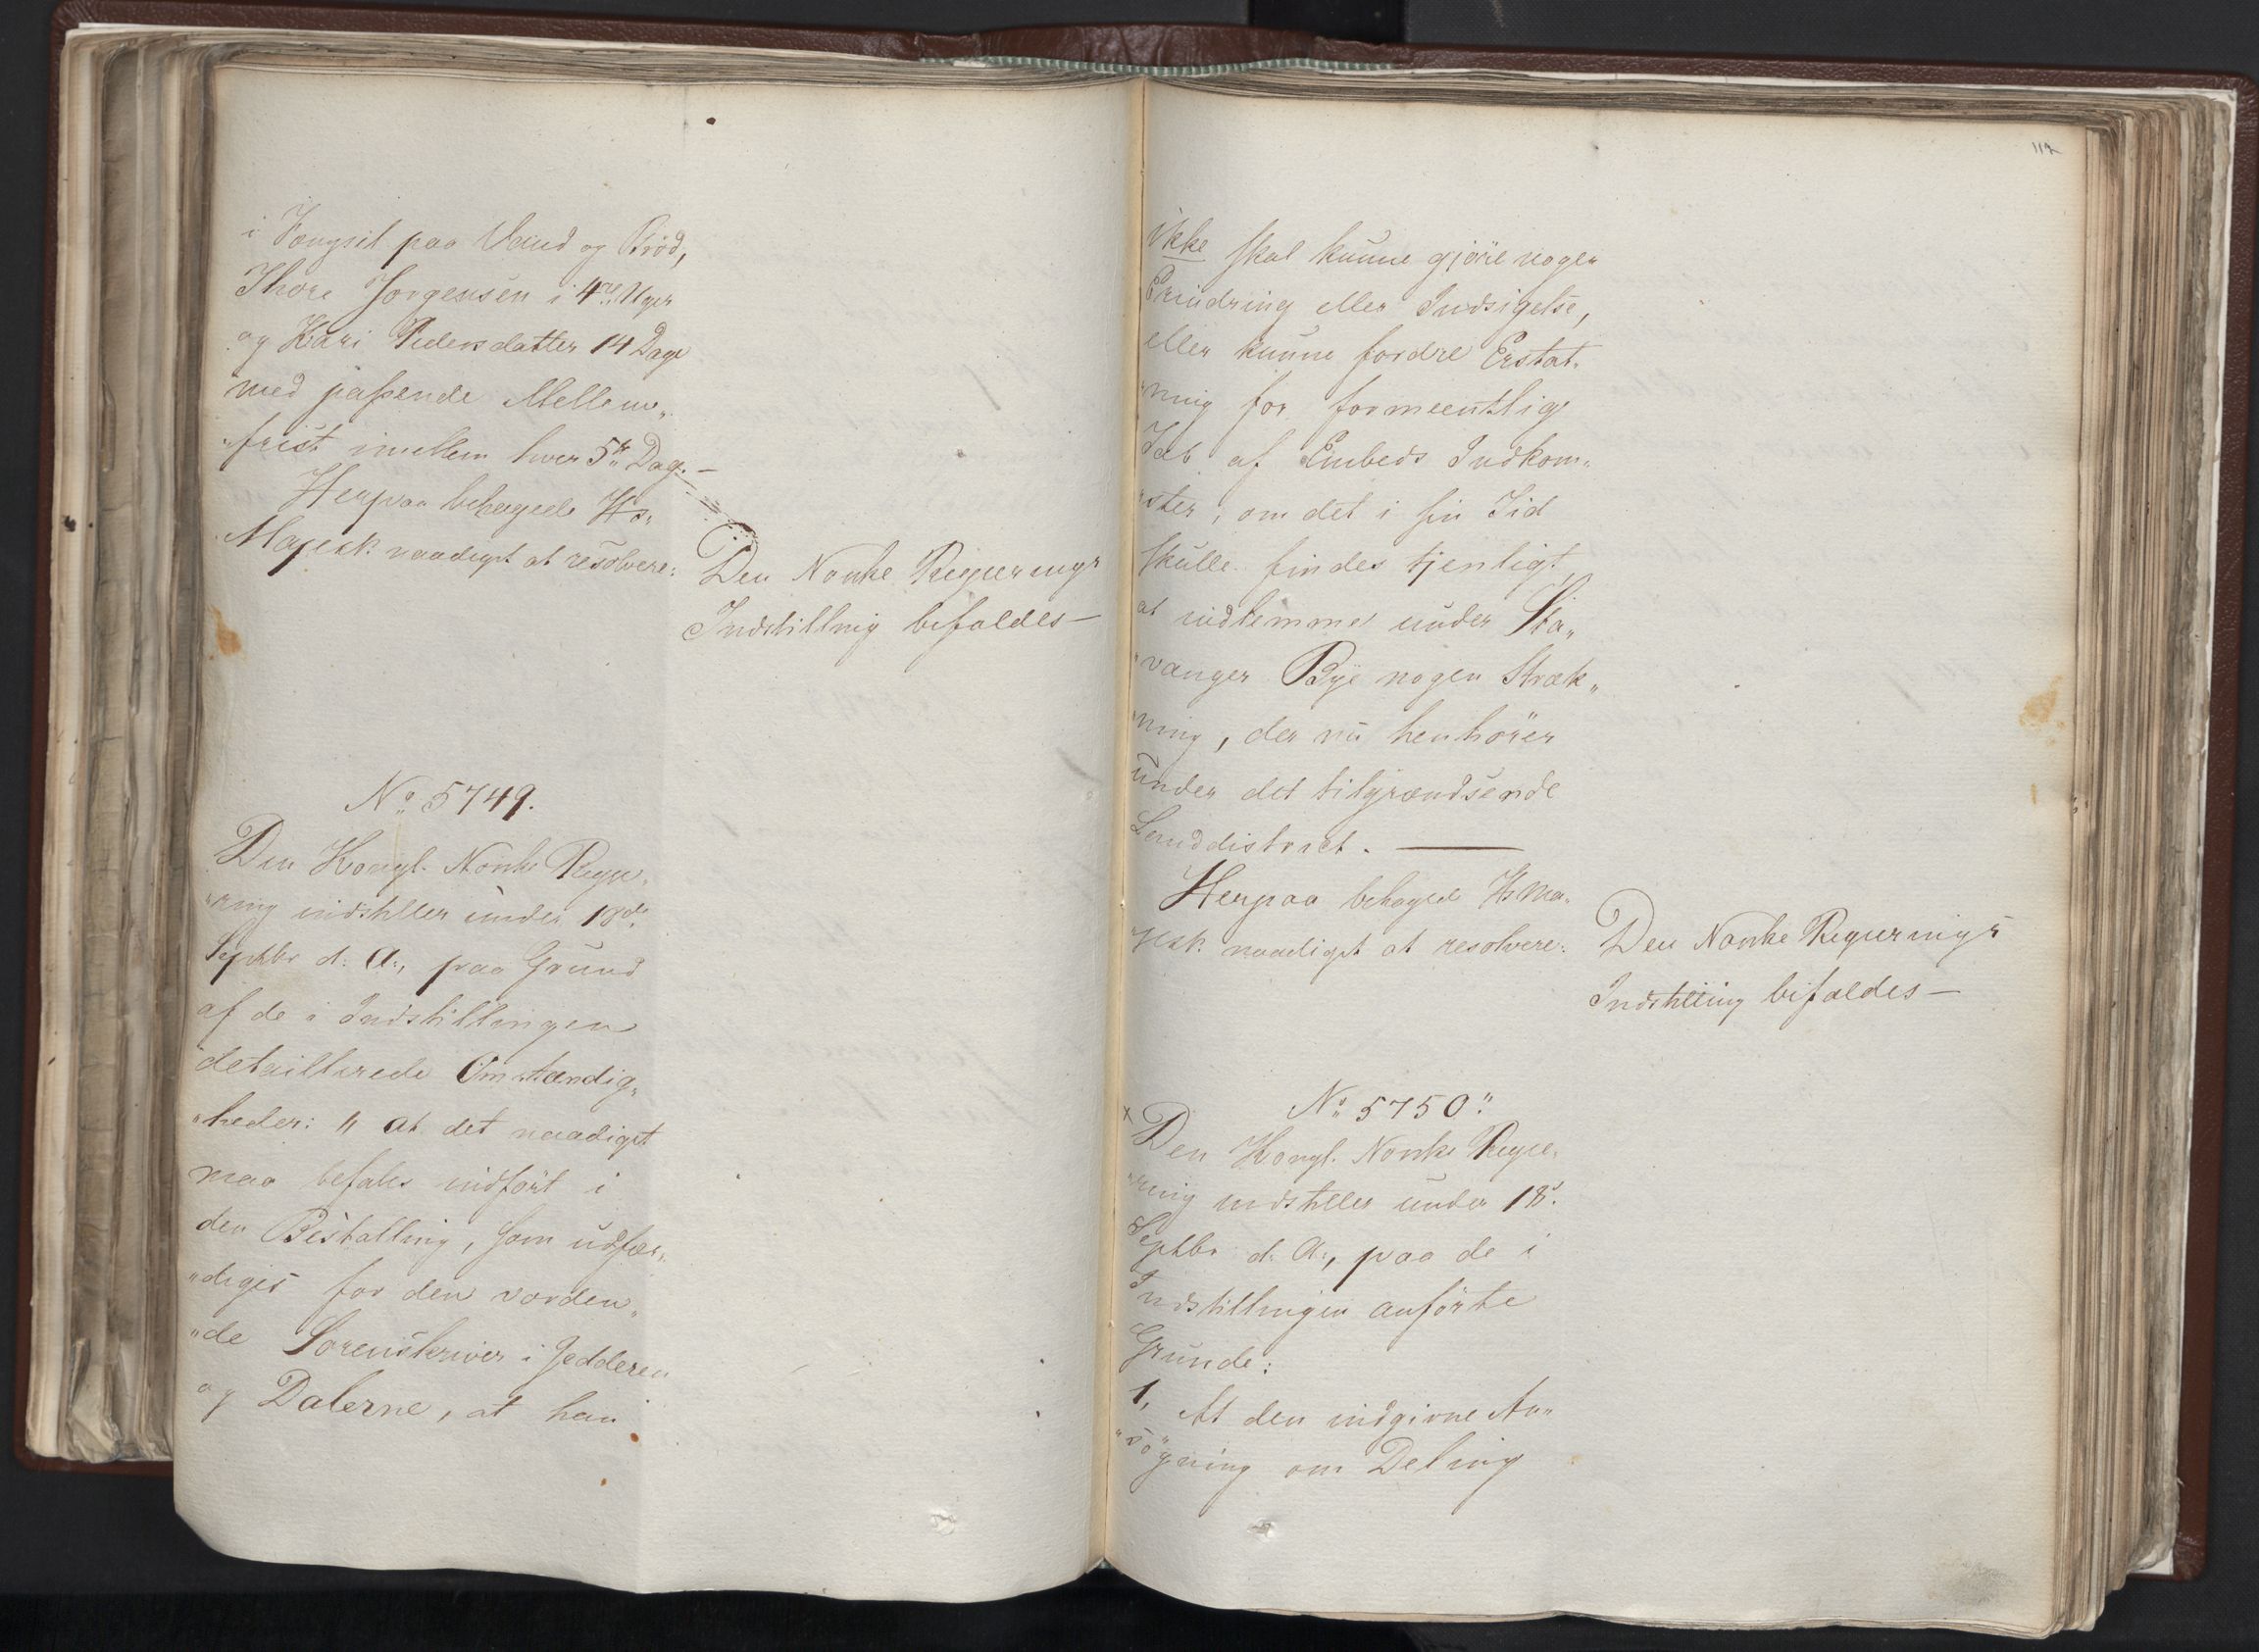 i Fængsel paa Vand og Brød,
Thore Jorgensen i 4re Uger
og Kari Pedersdatter 14 Dage
med passende Mellem„
„frist imellem hver 5te Dag. —
Herpaa behagede Hs.
Majestt. naadigst at resolvere:
Den Norske Regjerings
Indstilling bifaldes —
No. 5749.
Den Kongl. Norske Regje„
„ring indstiller under 18de
Septbr d. A., paa Grund
af de i Indstillingen
detaillerede Omstændig„
„heder: „ at det naadigst
maa befales indført i
den Bestalling, som udfær„
„diges for den vorden„
„de Sorenskriver i Jedderen
og Dalerne, at han
117
ikke skal kunne gjöre nogen
Erindring eller Indsigelse,
eller kunne fordre Erstat„
„ning for formeentlig
Tab af Embeds Indkom„
„ster, om det i sin Tid
skulle findes tjenligt,
at indlemme under Sta„
„vanger Bye nogen Stræk„
„ning, der nu henhörer
under det tilgrændsende
Landdistrict. —
Herpaa behagede Hs Ma„
jestt. naadigst at resolvere:
Den Norske Regjerings
Indstilling bifaldes —
No. 5750.
x Den Kongl. Norske Regje„
„ring indstiller under 18d.
Septbr d. A., paa de i
Indstillingen anförte
Grunde:
1, At den indgivne An„
„sögning om Deling